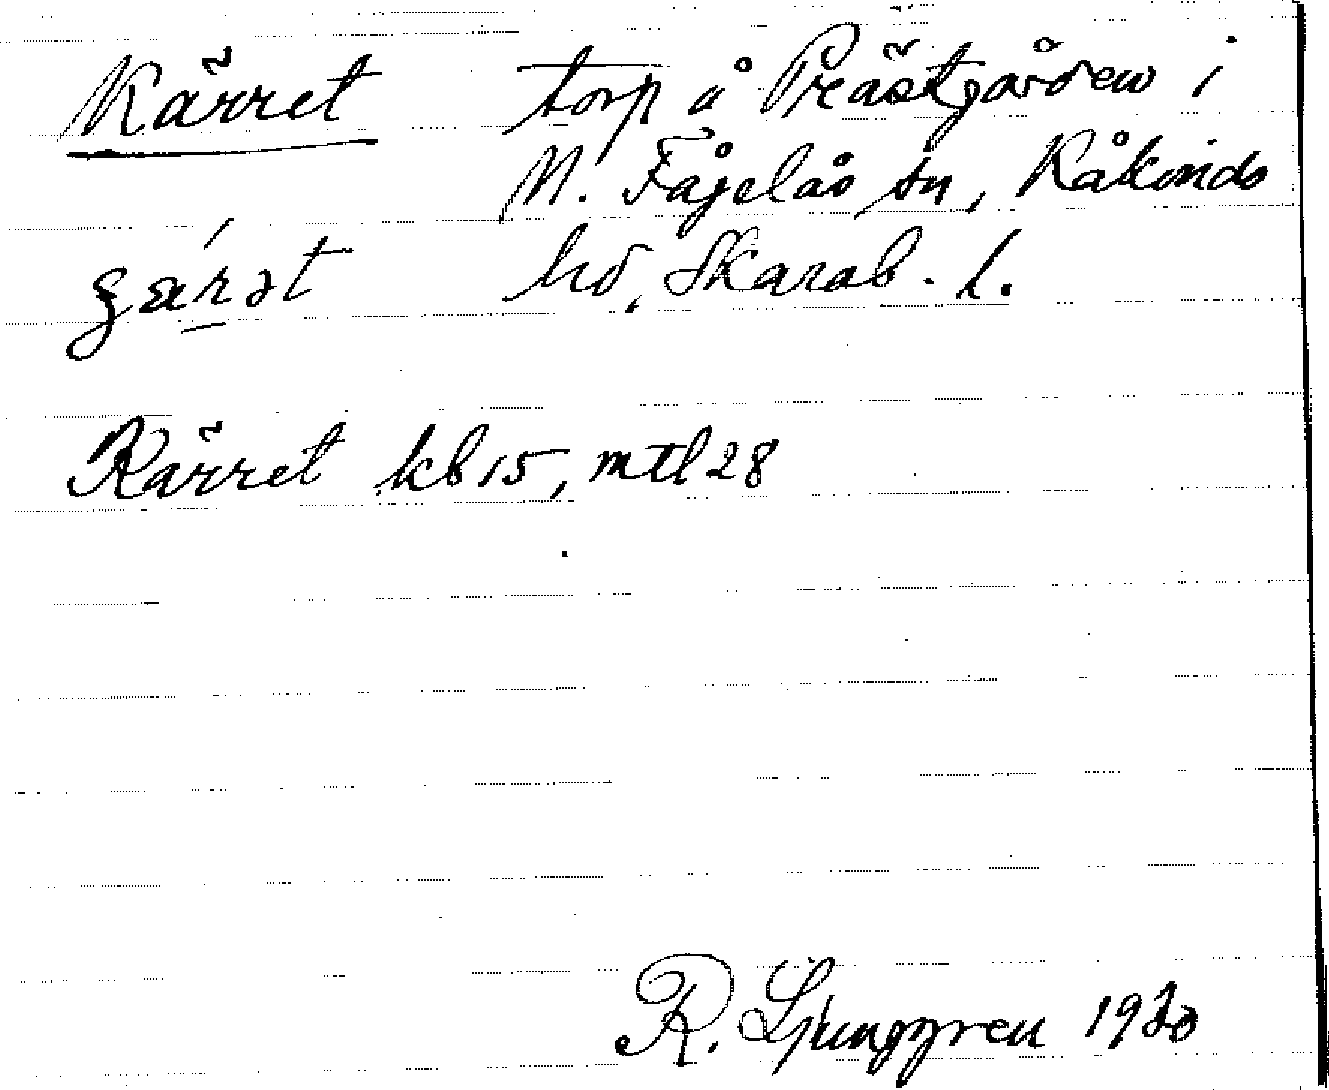 Kärret torp å Prästgården i
N. Fågelås sn, Kåkinds
hd, Skarab. l.
Kärret kb 15, mtl 28
R. Ljunggren